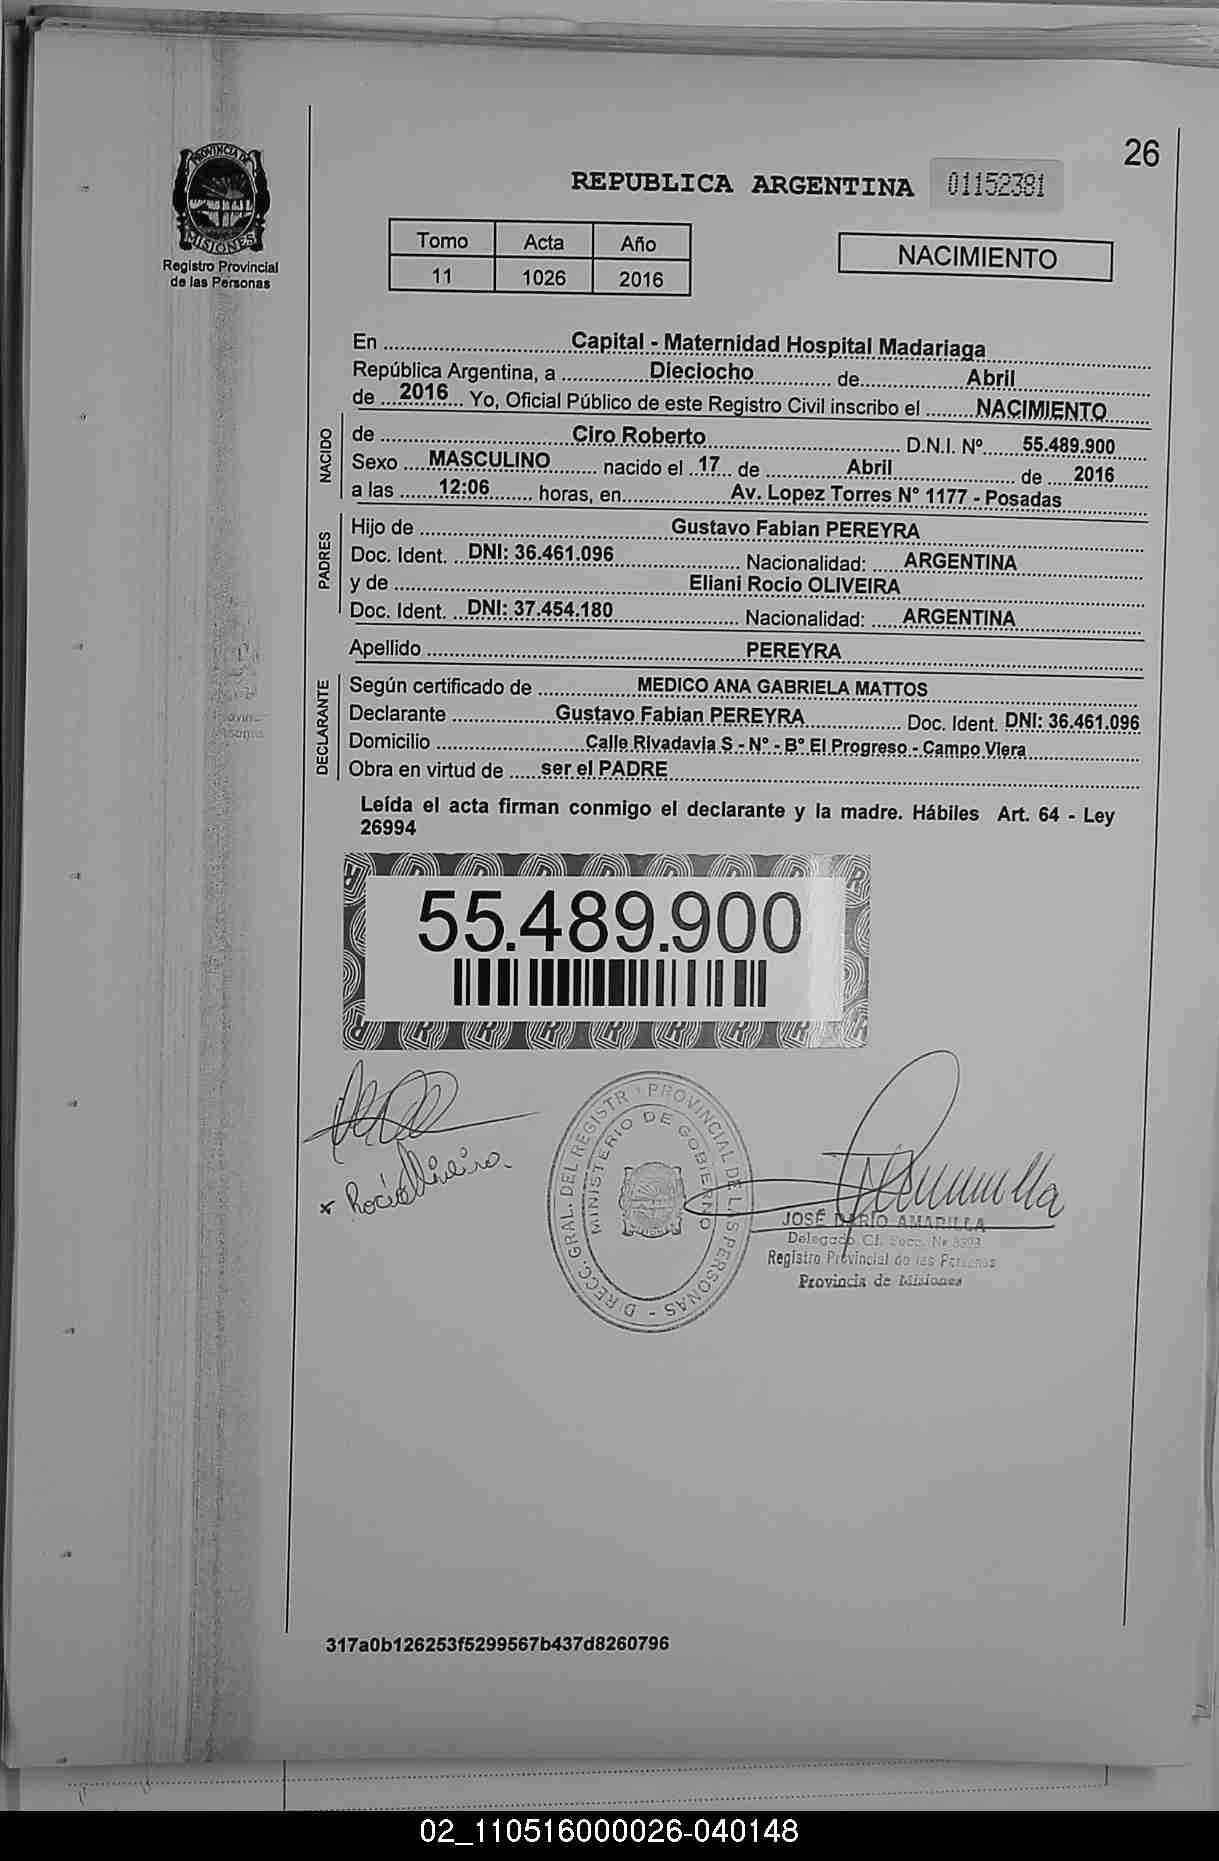 26
PROVINCIA DE
MISIONES
Registro Provincial
de las Personas
REPUBLICA ARGENTINA 01152381
Tomo Acta Año
11 1026 2016
NACIMIENTO
En ............ Capital - Maternidad Hospital Madariaga ............
República Argentina, a ............ Dieciocho ............ de ............ Abril ............
de ... 2016 ... Yo, Oficial Público de este Registro Civil inscribo el ......... NACIMIENTO .........
NACIDO
de ............ Ciro Roberto ............ D.N.I. Nº ...... 55.489.900 ......
Sexo .... MASCULINO ......... nacido el .. 17 .. de ............ Abril ............ de .... 2016 ......
a las ...... 12:06 ........ horas, en ............ Av. Lopez Torres N° 1177 - Posadas ............
PADRES
Hijo de ............ Gustavo Fabian PEREYRA ............
Doc. Ident. ... DNI: 36.461.096 ............ Nacionalidad: ..... ARGENTINA ............
y de ............ Eliani Rocio OLIVEIRA ............
Doc. Ident. ... DNI: 37.454.180 ............ Nacionalidad: ..... ARGENTINA ............
Apellido ............ PEREYRA ............
DECLARANTE
Según certificado de ............ MEDICO ANA GABRIELA MATTOS ............
Declarante ............ Gustavo Fabian PEREYRA ............ Doc. Ident. DNI: 36.461.096
Domicilio ............ Calle Rivadavia S - N° - B° El Progreso - Campo Viera ............
Obra en virtud de ..... ser el PADRE ............
Leída el acta firman conmigo el declarante y la madre. Hábiles Art. 64 - Ley
26994
55.489.900
x Rocio Oliveira.
DIRECC. GRAL. DEL REGISTR PROVINCIAL DE LAS PERSONAS -
MINISTERIO DE GOBIERNO
JOSÉ DARIO AMARILLA
Delegado
Registro Provincial de las Personas
Provincia de Misiones
317a0b126253f5299567b437d8260796
02_110516000026-040148